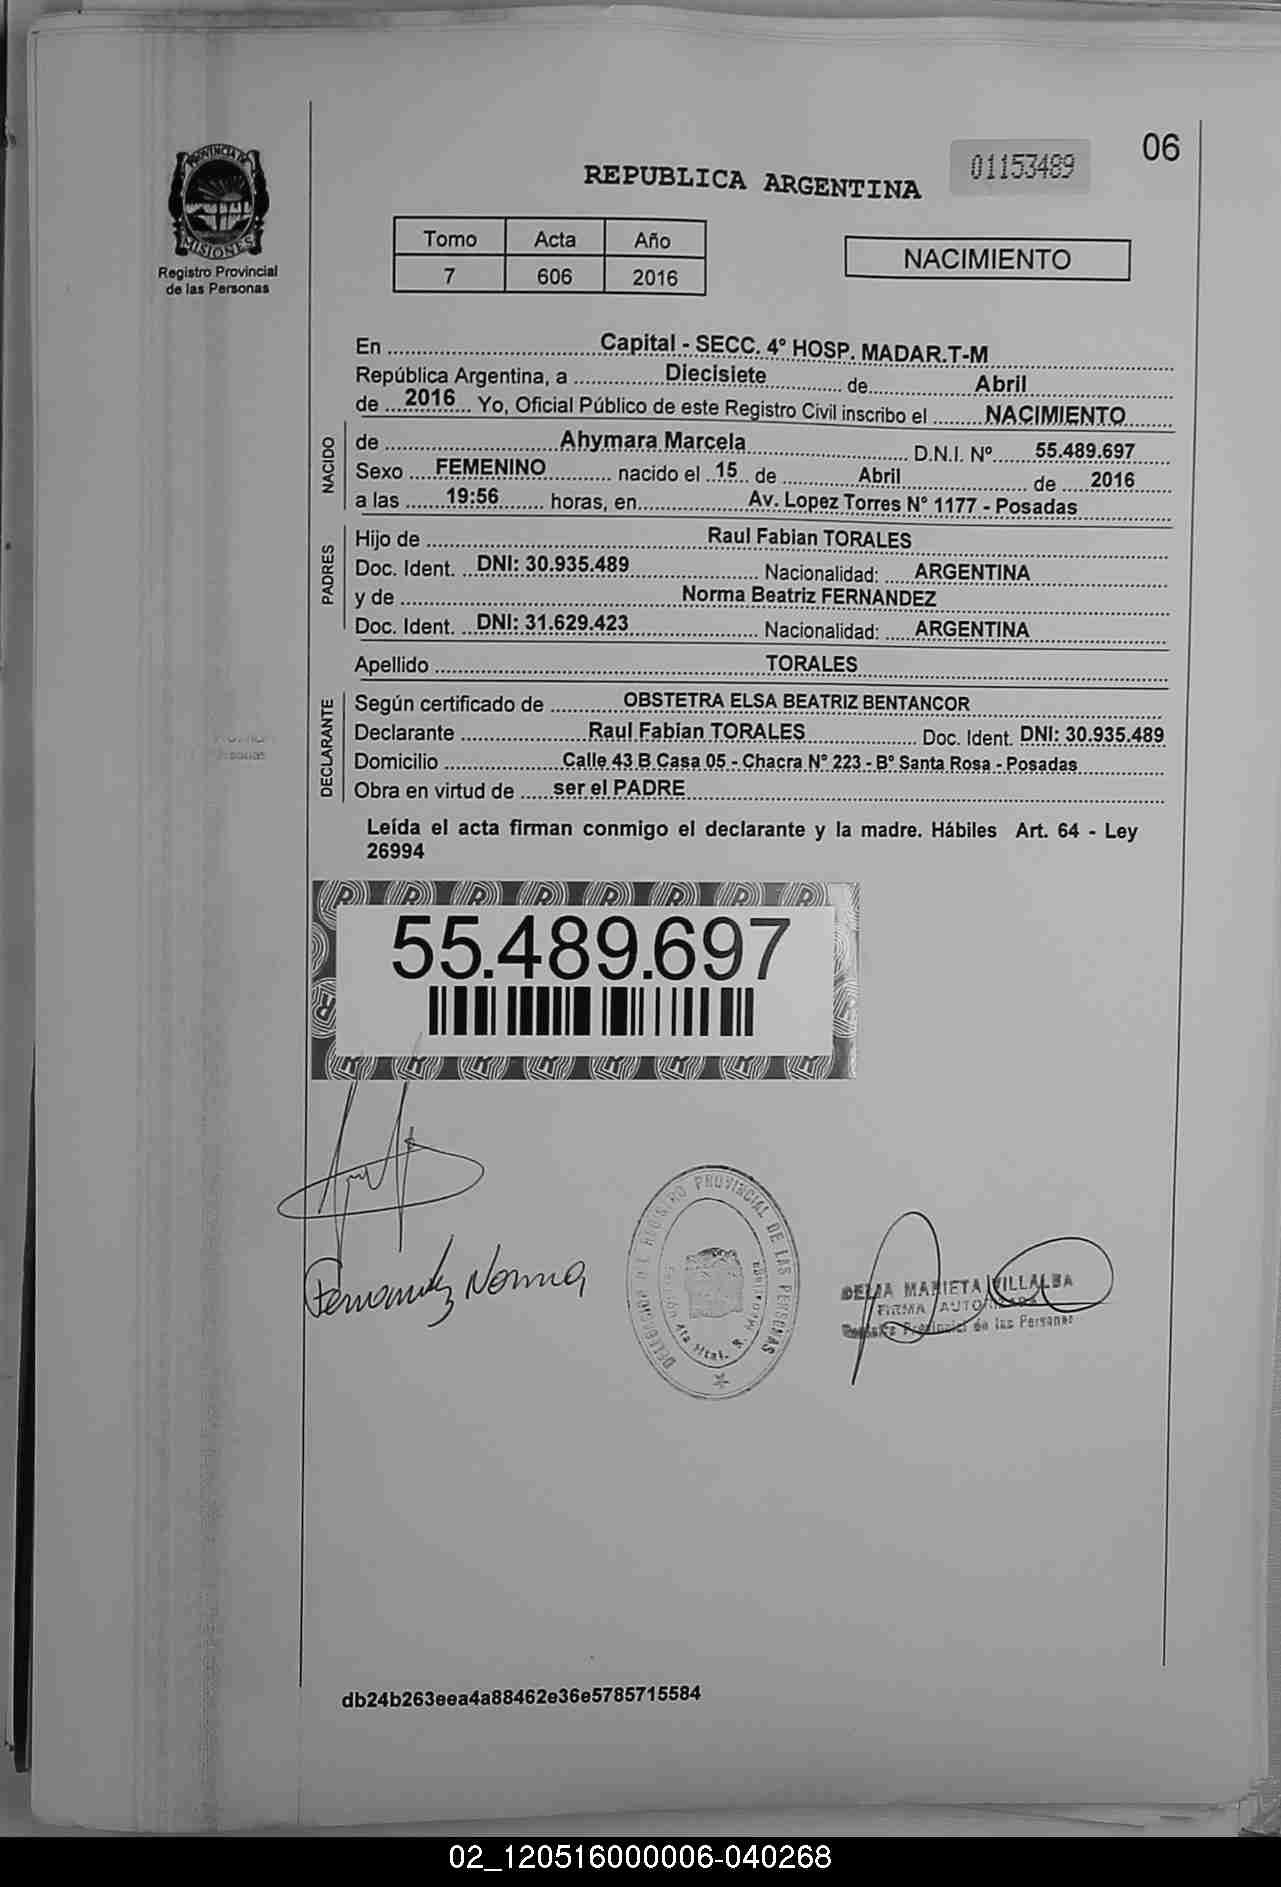 PROVINCIA DE
MISIONES
Registro Provincial
de las Personas
REPUBLICA ARGENTINA
01153489
06
Tomo Acta Año
7 606 2016
NACIMIENTO
En Capital - SECC. 4° HOSP. MADAR.T-M
República Argentina, a Diecisiete de Abril
de 2016 Yo, Oficial Público de este Registro Civil inscribo el NACIMIENTO
NACIDO
de Ahymara Marcela D.N.I. Nº 55.489.697
Sexo FEMENINO nacido el 15 de Abril de 2016
a las 19:56 horas, en Av. Lopez Torres N° 1177 - Posadas
PADRES
Hijo de Raul Fabian TORALES
Doc. Ident. DNI: 30.935.489 Nacionalidad: ARGENTINA
y de Norma Beatriz FERNANDEZ
Doc. Ident. DNI: 31.629.423 Nacionalidad: ARGENTINA
Apellido TORALES
DECLARANTE
Según certificado de OBSTETRA ELSA BEATRIZ BENTANCOR
Declarante Raul Fabian TORALES Doc. Ident. DNI: 30.935.489
Domicilio Calle 43 B Casa 05 - Chacra N° 223 - B° Santa Rosa - Posadas
Obra en virtud de ser el PADRE
Leída el acta firman conmigo el declarante y la madre. Hábiles Art. 64 - Ley
26994
55.489.697
Fernandez Norma
REGISTRO PROVINCIAL DE LAS PERSONAS
DELIA MARIETA VILLALBA
FIRMA AUTORIZADA
Registro Provincial de las Personas
db24b263eea4a88462e36e5785715584
02_120516000006-040268